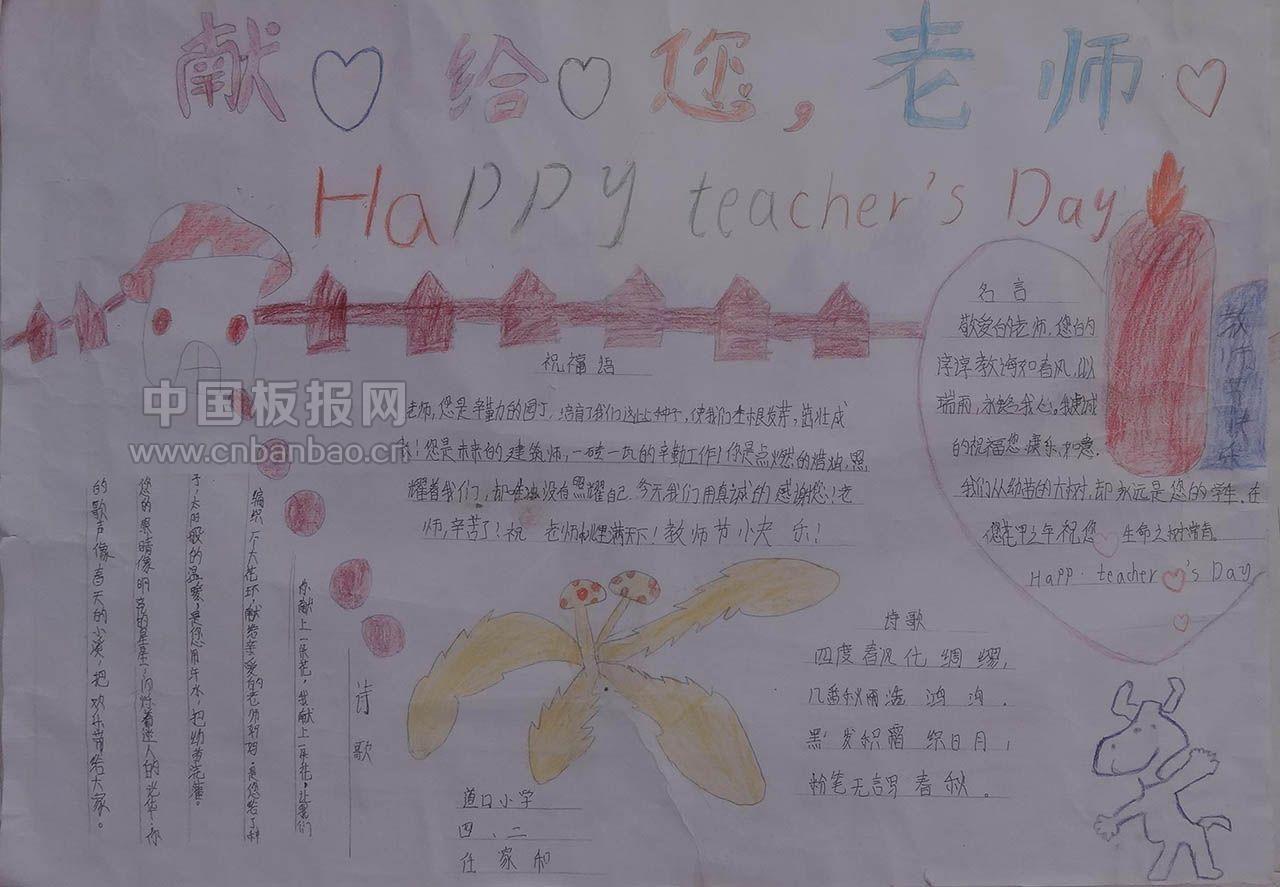 献给您，老师
Happy teacher's Day
名言
敬爱的老师，您的
谆谆教诲和春风，似
瑞雨，永铭我心，我虔诚
的祝福您，康乐，如意。
我们从幼苗的大树，却永远是您的学生，在
您花甲之年祝您 生命之树常青。
Happ. teacher's Day
教师节快乐
祝福语
老师，您是辛勤的园丁，培育了我们这些种子，使我们生根发芽，茁壮成
长！您是未来的建筑师，一砖一瓦的辛勤工作！你是点燃的蜡烛，照
耀着我们，却没有照耀自己，今天我们用真诚的感谢您！老
师，辛苦了！祝 老师桃李满天下！教师节小央乐！
中国板报网
www.cnbanbao.cn
诗歌
你献上一朵花，我献上一朵花，让我们
编织个大花环，献给亲爱的老师妈妈。是您给了种
子，太阳般的温暖，是您用汗水，把幼苗浇灌。
您的眼睛像明亮的星星，闪烁着迷人的光华，你
的歌声像春天的小溪，把欢乐带给大家。
诗歌
四度春风化绸缪，
几番秋雨造鸿沟。
黑发积霜织日月，
粉笔无言写春秋。
道口小学
四、二
任家和